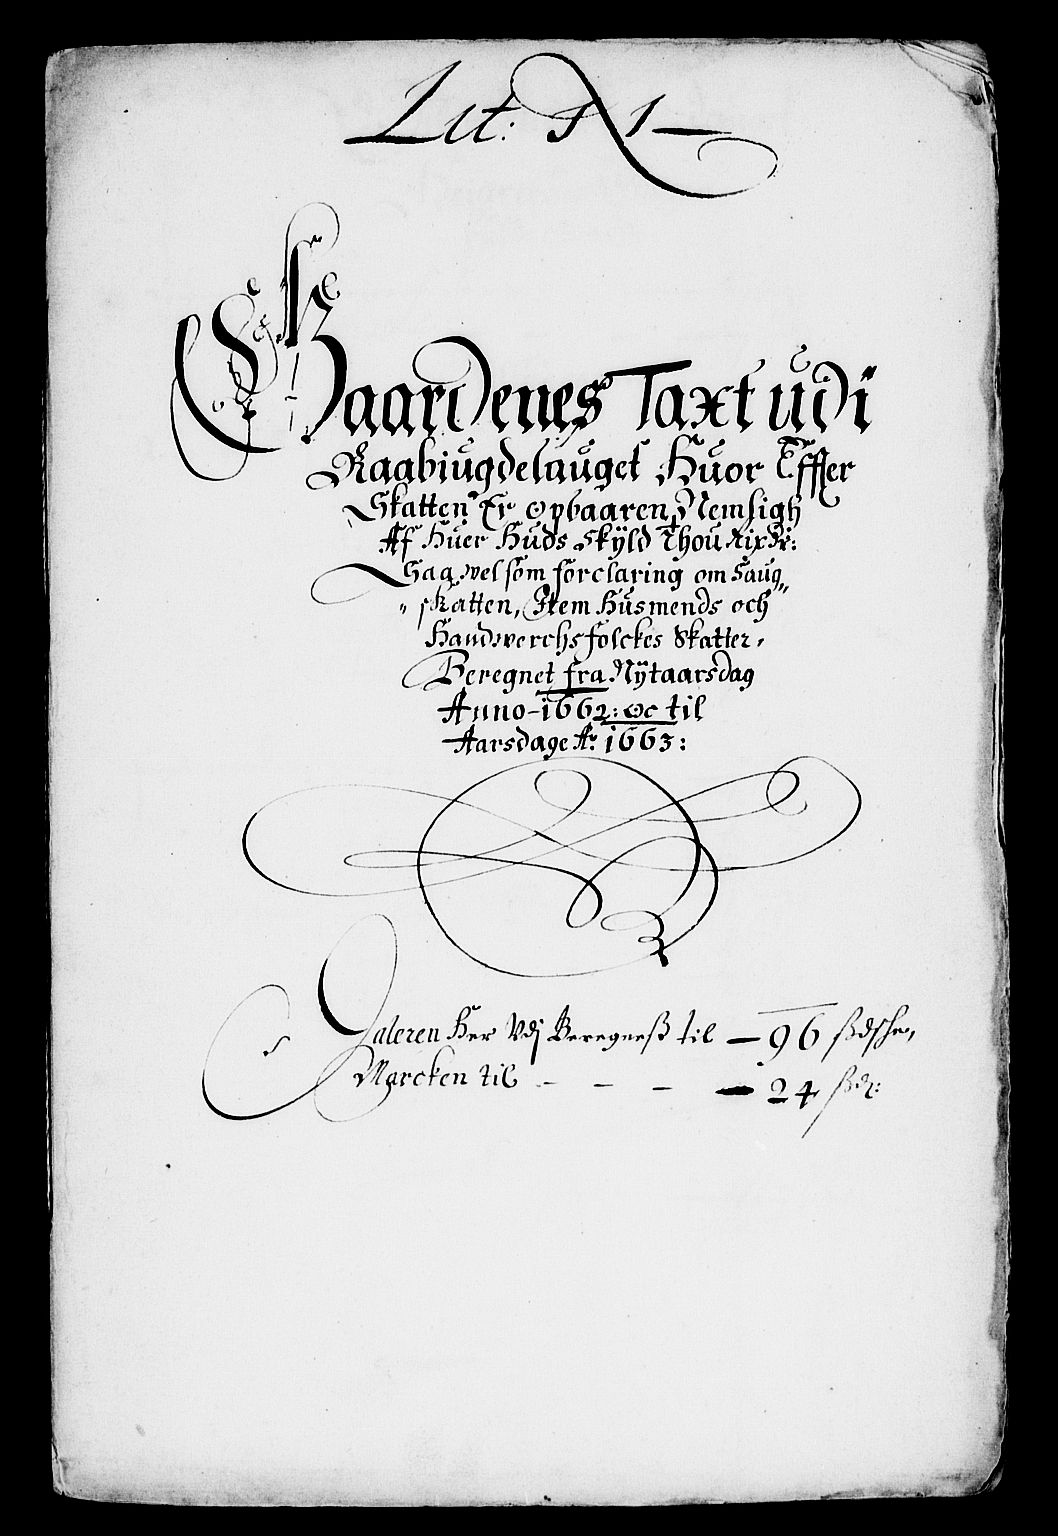 Lit: N 1
Gaardenes Taxt udi
Raabiugdelauget Huor Effter
Skatten Er Opbaaren, Nemligh
Af Huer Huds Skÿld Thou Rixdr:
Saa vel som forclaring om Saug
"skatten, Item Husmends och"
Handwerchsfolckes Skatter,
Beregnet fra Nÿtaarsdag
Anno-1662: oc til
Aarsdage Ao: 1663:
Daleren Her Vdj Beregneß til — 96
Marcken til - - - — 24